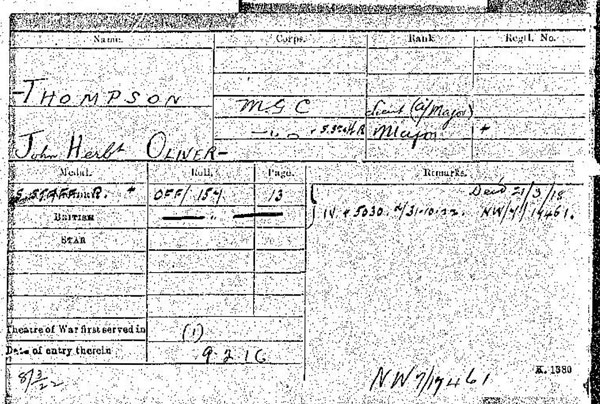 Name. Corps. Rank Regtl. No.
THOMPSON
M G C Lieut (a/Major)
John Herbt OLIVER - Major
Medal. Roll. Page. Remarks.
OFF/ 154 13 Dead 21/3/18
BRITISH — " — IV. 5030. 31-10-22. NW/7/17461.
STAR
Theatre of War first served in (1)
Date of entry therein 9.2.16
8/3/22 NW7/17461 K. 1380